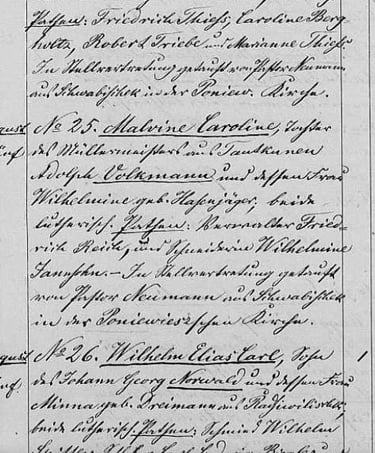 Pathen: Friedrich Thiess, Caroline Berg-
holtz, Robert Triebe und Marianne Thiess.
In Stellvertretung getauft von Pastor Neumann
aus Schwabischek in der Poniew. Kirche.
No 25. Malvine Caroline, Tochter
des Müllermeisters aus Tautkunen
Adolph Volkmann und dessen Frau
Wilhelmine geb. Hasenjäger, beide
lutherisch. Pathen: Verwalter Fried-
rich Reich, und Schneiderin Wilhelmine
Jannsohn. – In Stellvertretung getauft
von Pastor Neumann aus Schwabischek
in der Poniewieszschen Kirche.
No 26. Wilhelm Elias Carl, Sohn
des Johann Georg Norwald und dessen Frau
Minna geb. Dreimann aus Radziwilischek,
beide lutherisch. Pathen: Schmied Wilhelm
1